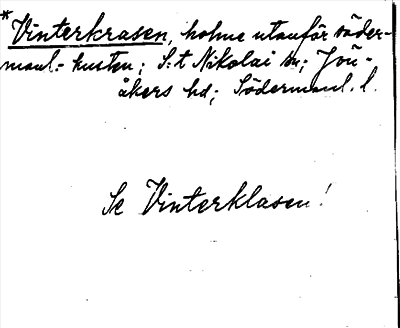 *Vinterkrasen, holme utanför söder-
manl:- kusten; S:t Nikolai sn; Jön-
åkers hd; Södermanl. l.
Se Vinterklasen!